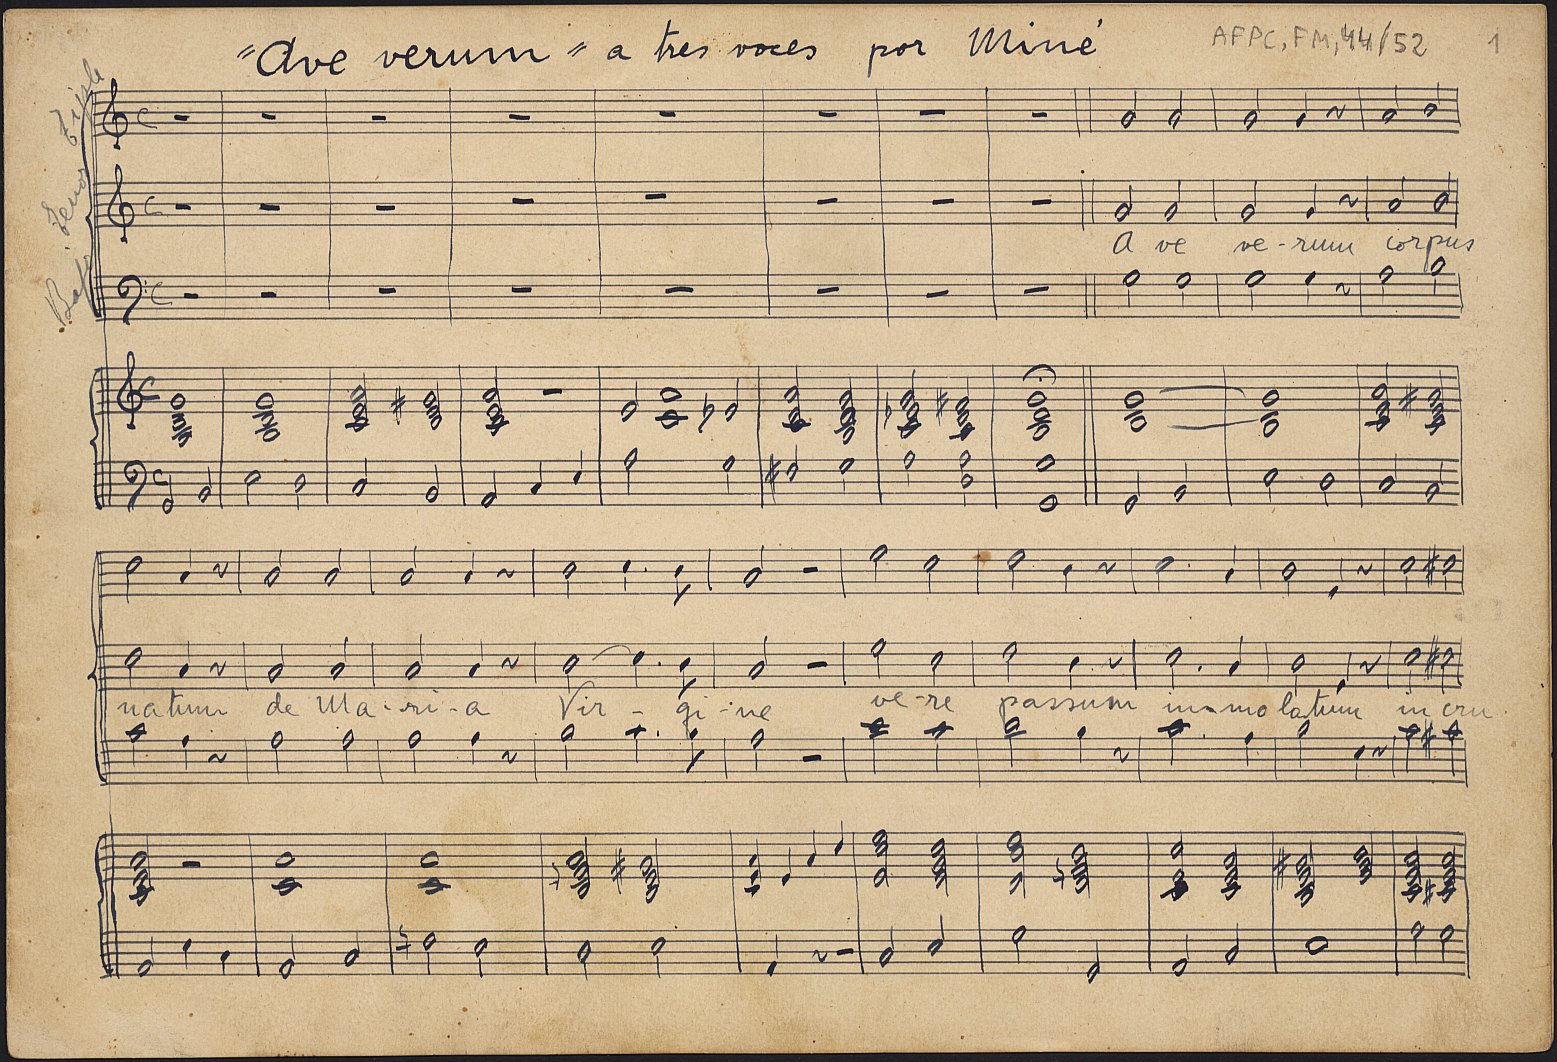 "Ave verum" a tres voces por Miné AFPC,FM,44/52 1
Tiple
Tenor
Bajo
C
C
A ve ve-rum corpus
C
C
C
natum de Ma-ri-a Vir-gi-ne ve-re passum in-mo latum in cru